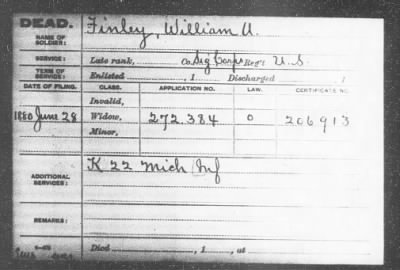 DEAD.
NAME OF SOLDIER: Finley, William U.
SERVICE: Late rank, Co. Sig Corps Reg't U.S.
TERM OF SERVICE: Enlisted , 1 Discharged , 1
DATE OF FILING. CLASS. APPLICATION NO. LAW. CERTIFICATE NO.
Invalid,
1880 June 28 Widow, 272.384 0 206913
Minor,
ADDITIONAL SERVICES: K 22 Mich Inf
REMARKS:
Died , 1 , at